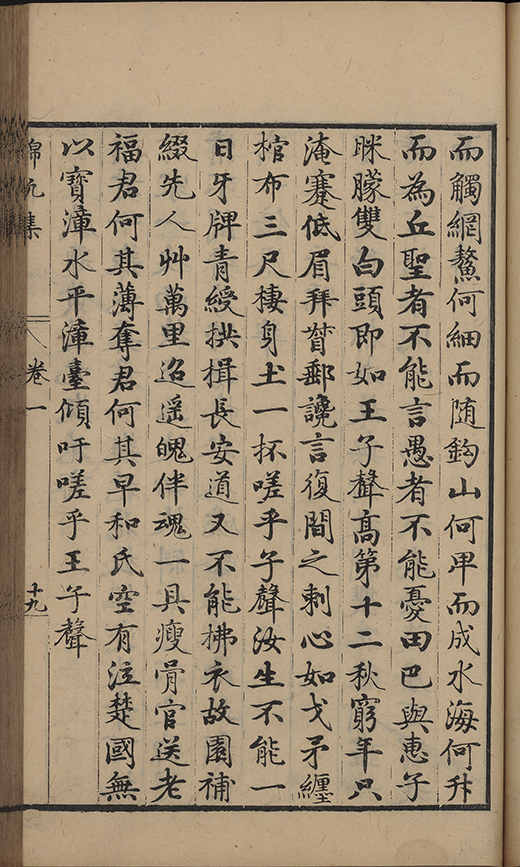 而觸網鰲何細而随鈎山何卑而成水海何升
而為丘聖者不能言愚者不能憂田巴與惠子
眯矇雙白頭即如王子聲高第十二秋窮年只
淹蹇低眉拜督郵讒言復間之刺心如戈矛纏
棺布三尺棲身土一抔嗟乎子聲汝生不能一
日牙牌青綬拱揖長安道又不能拂衣故園補
綴先人艸萬里迢遥魄伴魂一具瘦骨官送老
福君何其薄奪君何其早和氏空有泣楚國無
以寶漳水平漳臺傾吁嗟乎王子聲
錦帆集
卷一
十九